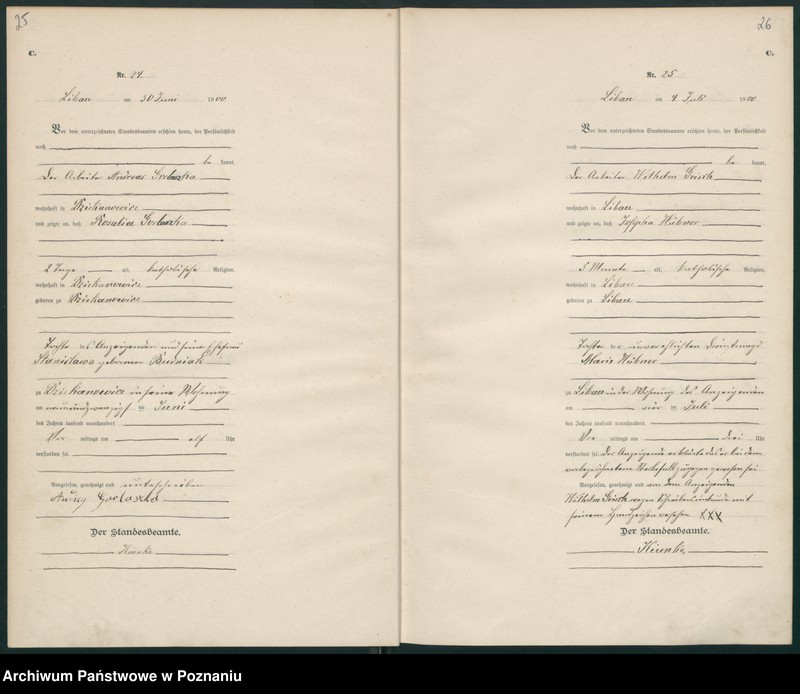 25
C.
Nr. 24.
Libau am 30 Juni 1900
Vor dem unterzeichneten Standesbeamten erschien heute, der Persönlichkeit
nach
be kannt,
Der Arbeiter Andreas
wohnhaft in
und zeigte an, daß Rosalia
2 Tage alt, katholischer Religion,
wohnhaft in
geboren zu
Tochter des Anzeigenden und seiner Ehefrau
Stanislawa geborenen Budniak
zu in seiner Wohnung
am neunundzwanzigsten Juni
des Jahres tausend neunhundert
Vor mittags um elf Uhr
verstorben sei.
Vorgelesen, genehmigt und unterschrieben
Der Standesbeamte.
26
C.
Nr. 25
Libau am 4 Juli 1900
Vor dem unterzeichneten Standesbeamten erschien heute, der Persönlichkeit
nach
be kannt,
Der Arbeiter Wilhelm
wohnhaft in Libau
und zeigte an, daß Josepha Hübner
5 Monate alt, katholischer Religion,
wohnhaft in Libau
geboren zu Libau
Tochter der unverehelichten Dienstmagd
Marie Hübner
zu Libau in der Wohnung des Anzeigenden
am vier ten Juli
des Jahres tausend neunhundert
Vor mittags um drei Uhr
verstorben sei. Der Anzeigende erklärte daß er bei dem
vorbezeichneten Sterbefall zugegen gewesen sei
Vorgelesen, genehmigt und von dem Anzeigenden
Wilhelm wegen Schreibensunkunde mit
seinem Handzeichen versehen XXX
Der Standesbeamte.
Archiwum Państwowe w Poznaniu